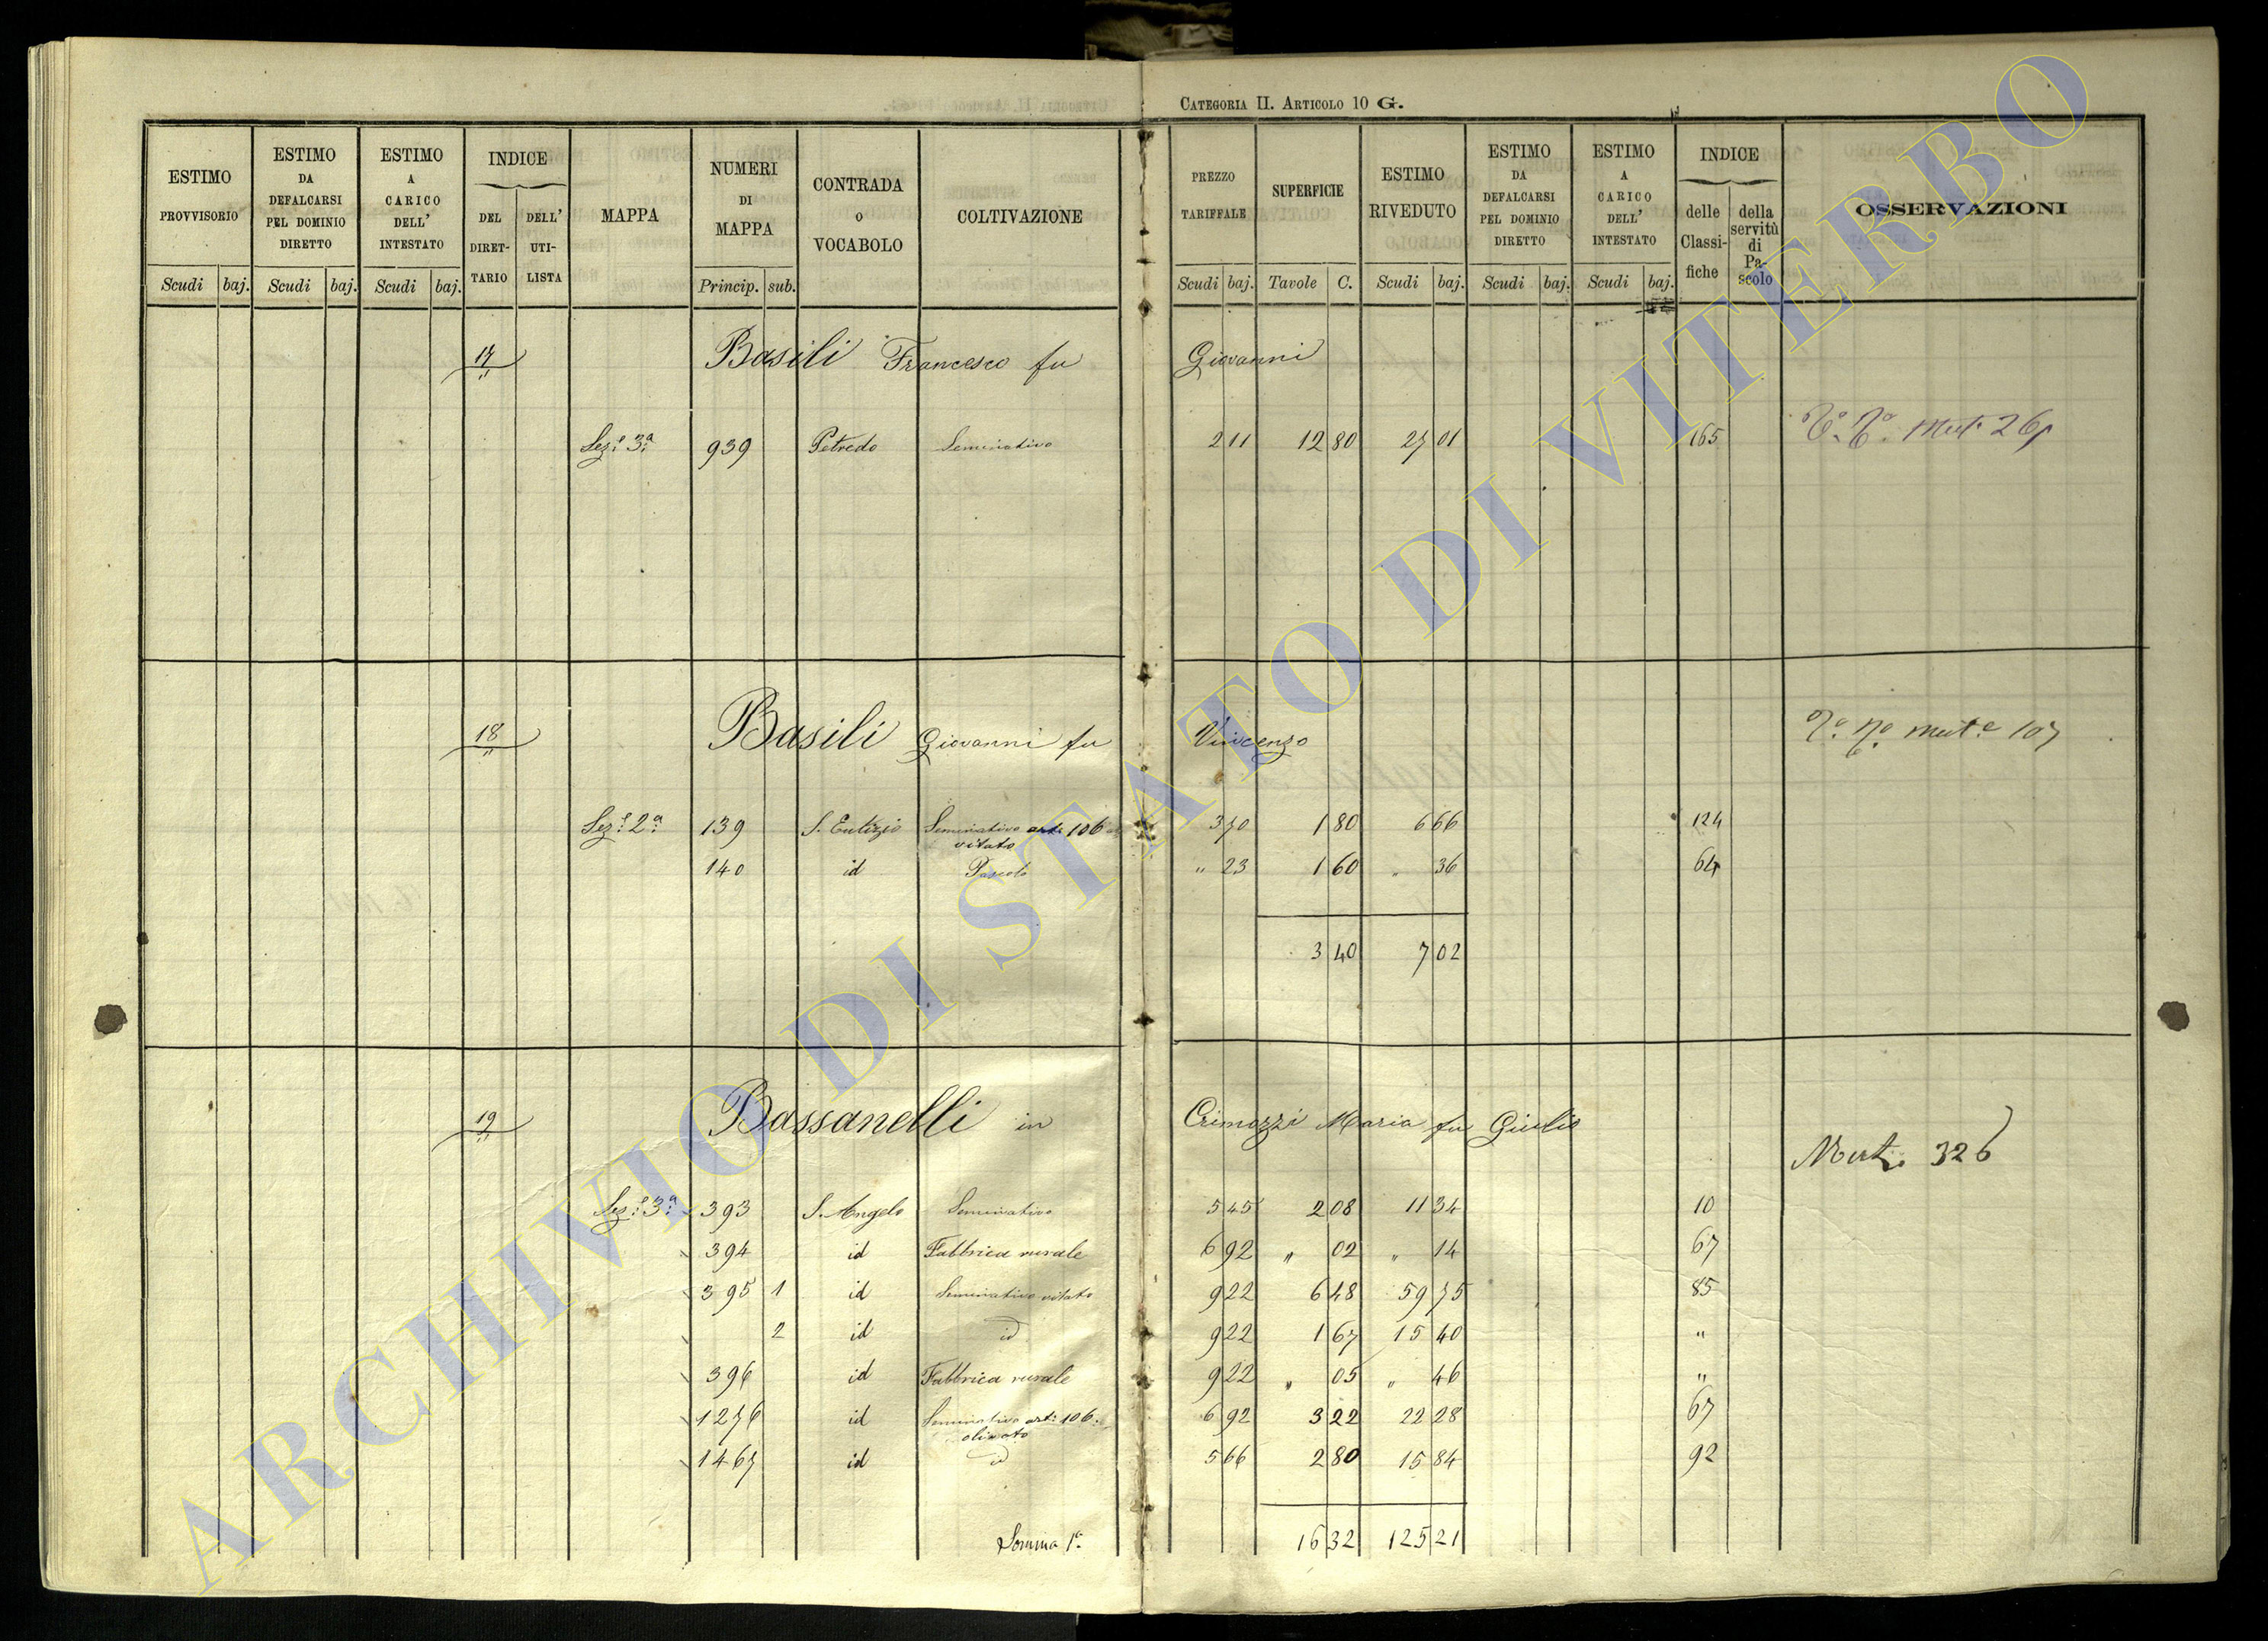 CATEGORIA II. ARTICOLO 10 G.
ESTIMO PROVVISORIO Scudi baj.
ESTIMO DA DEFALCARSI PEL DOMINIO DIRETTO Scudi baj.
ESTIMO A CARICO DELL' INTESTATO Scudi baj.
INDICE DEL DIRET-TARIO DELL' UTI-LISTA
MAPPA
NUMERI DI MAPPA Princip. sub.
CONTRADA o VOCABOLO
COLTIVAZIONE
PREZZO TARIFFALE Scudi baj.
SUPERFICIE Tavole C.
ESTIMO RIVEDUTO Scudi baj.
ESTIMO DA DEFALCARSI PEL DOMINIO DIRETTO Scudi baj.
ESTIMO A CARICO DELL' INTESTATO Scudi baj.
INDICE delle Classi-fiche della servitù di Pa-scolo
OSSERVAZIONI
17 Basili Francesco fu Giovanni
Sez.e 3.a 939 Petredo Seminativo 2 11 12 80 27 01 165 Mut. 26
18 Basili Giovanni fu Vincenzo mut.e 107
Sez.e 2.a 139 S. Eutizio Seminativo art: 106 3 70 1 80 6 66 124
vitato
140 id Pascolo " 23 1 60 " 36 64
3 40 7 02
19 Bassanelli in Crimozzi Maria fu Giulio
Mut. 326
Sez.e 3.a 393 S. Angelo Seminativo 5 45 2 08 11 34 10
394 id Fabbrica rurale 6 92 " 02 " 14 67
395 1 id Seminativo vitato 9 22 6 48 59 75 85
2 id id 9 22 1 67 15 40 "
396 id Fabbrica rurale 9 22 " 05 " 46 "
1276 id Seminativo art: 106: 6 92 3 22 22 28 67
olivato
1467 id id 5 66 2 80 15 84 92
Somma 1a 16 32 125 21
ARCHIVIO DI STATO DI VITERBO